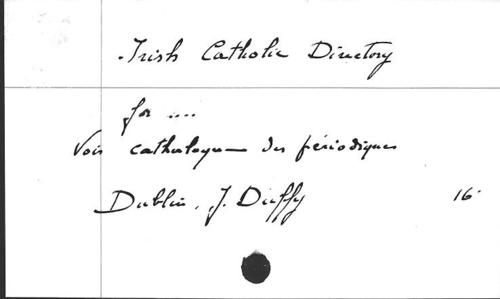 Irish Catholic Directory
for ....
Voir catalogue des périodiques
Dublin, J. Duffy 16°